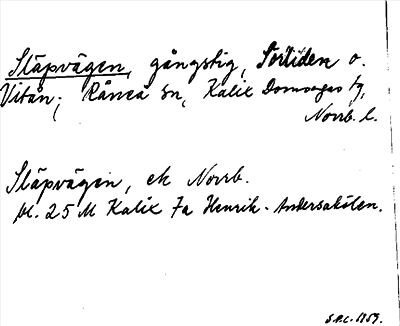 Släpvägen, gångstig, Sörtiden o.
Vitån; Råneå sn, Kalix Domsagas tg,
Norrb. l.
Släpvägen, ek Norrb.
bl. 25 M Kalix Fa Henrik-Andersaköten.